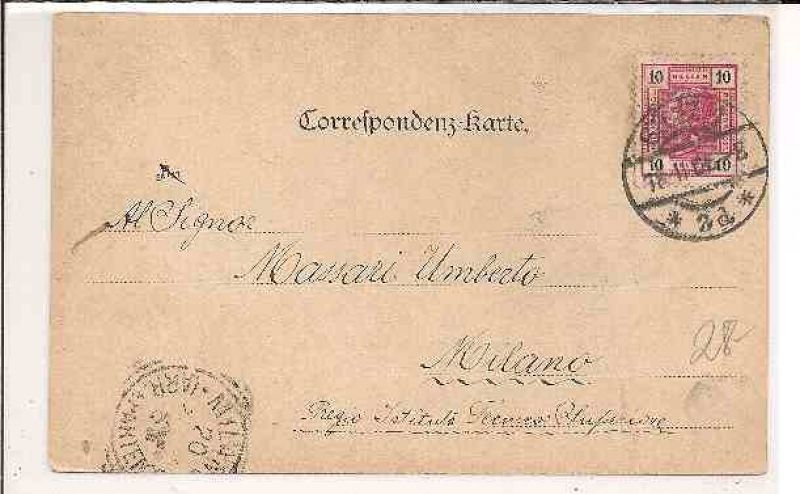 10 HELLER 10
10 10
Correspondenz-Karte.
An
Al Signor
Massari Umberto
Milano
Regio Istituto Tecnico Superiore
28
* 2d *
20